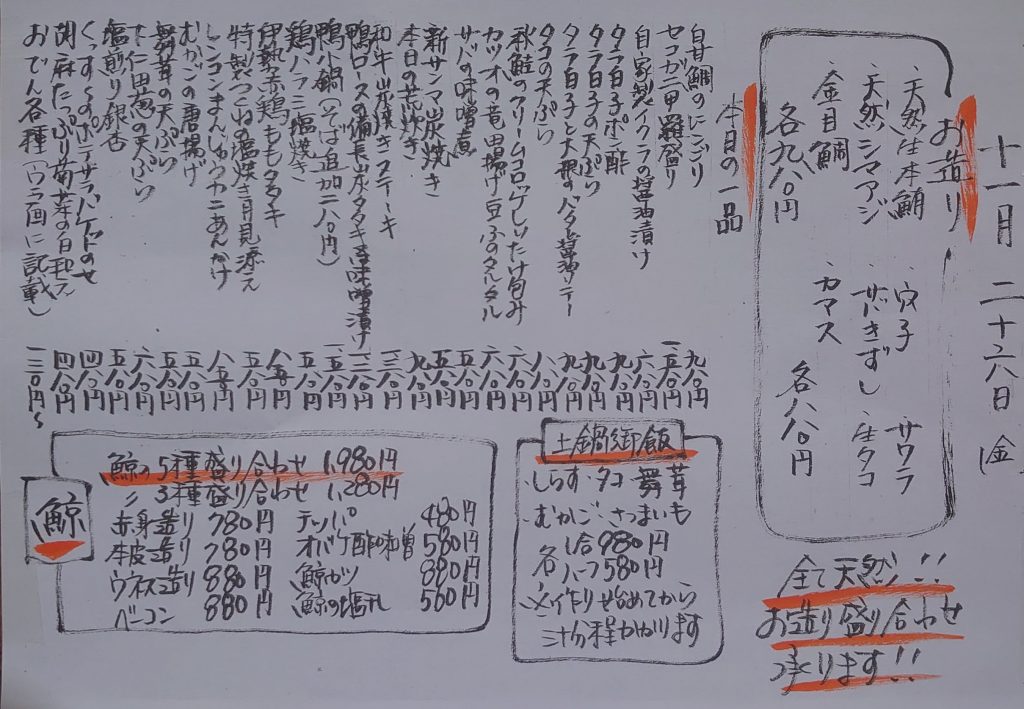 十一月二十六日(金)
お造り
・天然生本鮪
・天然シマアジ
・金目鯛
各九八〇円
・穴子
・サワラ
・炙にきずし
・生タコ
・カマス
各八八〇円
全て天然!!
お造り盛り合わせ
承ります!!
本日の一品
白甘鯛のにこごり 九八〇円
セコガニ甲羅盛り 一五八〇円
自家製イクラの醤油漬け 六八〇円
タラ白子ポン酢 九八〇円
タラ白子の天ぷら 九八〇円
タラ白子と大根のバター醤油ソテー 九八〇円
タコの天ぷら 八八〇円
秋鮭のクリームコロッケしいたけ包み 六八〇円
カツオの竜田揚げ豆ふのタルタル 六八〇円
サバの味噌煮 五八〇円
新サンマ炭焼き 九八〇円
本日の荒炊き
和牛炭焼きステーキ
鴨ロースの備長炭タタキ
鴨小鍋(そば追加二八〇円)
鶏ハラミ塩焼き 五八〇円
伊勢赤鶏ももタタキ 八八〇円
特製つくねの塩焼き月見添え 五八〇円
レンコンまんじゅうカニあんかけ
むかごの唐揚げ 五八〇円
舞茸の天ぷら 五八〇円
下仁田葱の天ぷら 六八〇円
塩煎り銀杏 五八〇円
くんすぃのポテサラバケットのせ 四八〇円
胡麻たっぷり菊菜の白和え 四八〇円
おでん各種(ウラ面に記載) 一三〇円〜
土鍋御飯
・しらす・タコ・舞茸
・むかご・さつまいも
各 1合980円
ハーフ580円
※作り始めてから
三十分程かかります
鯨
鯨の5種盛り合わせ 1,980円
〃 3種盛り合わせ 1,280円
赤身造り 780円
本皮造り 780円
ウネス造り 880円
ベーコン 880円
テッパ 480円
オバケ酢味噌 580円
鯨ガツ 880円
鯨の塩丸 560円